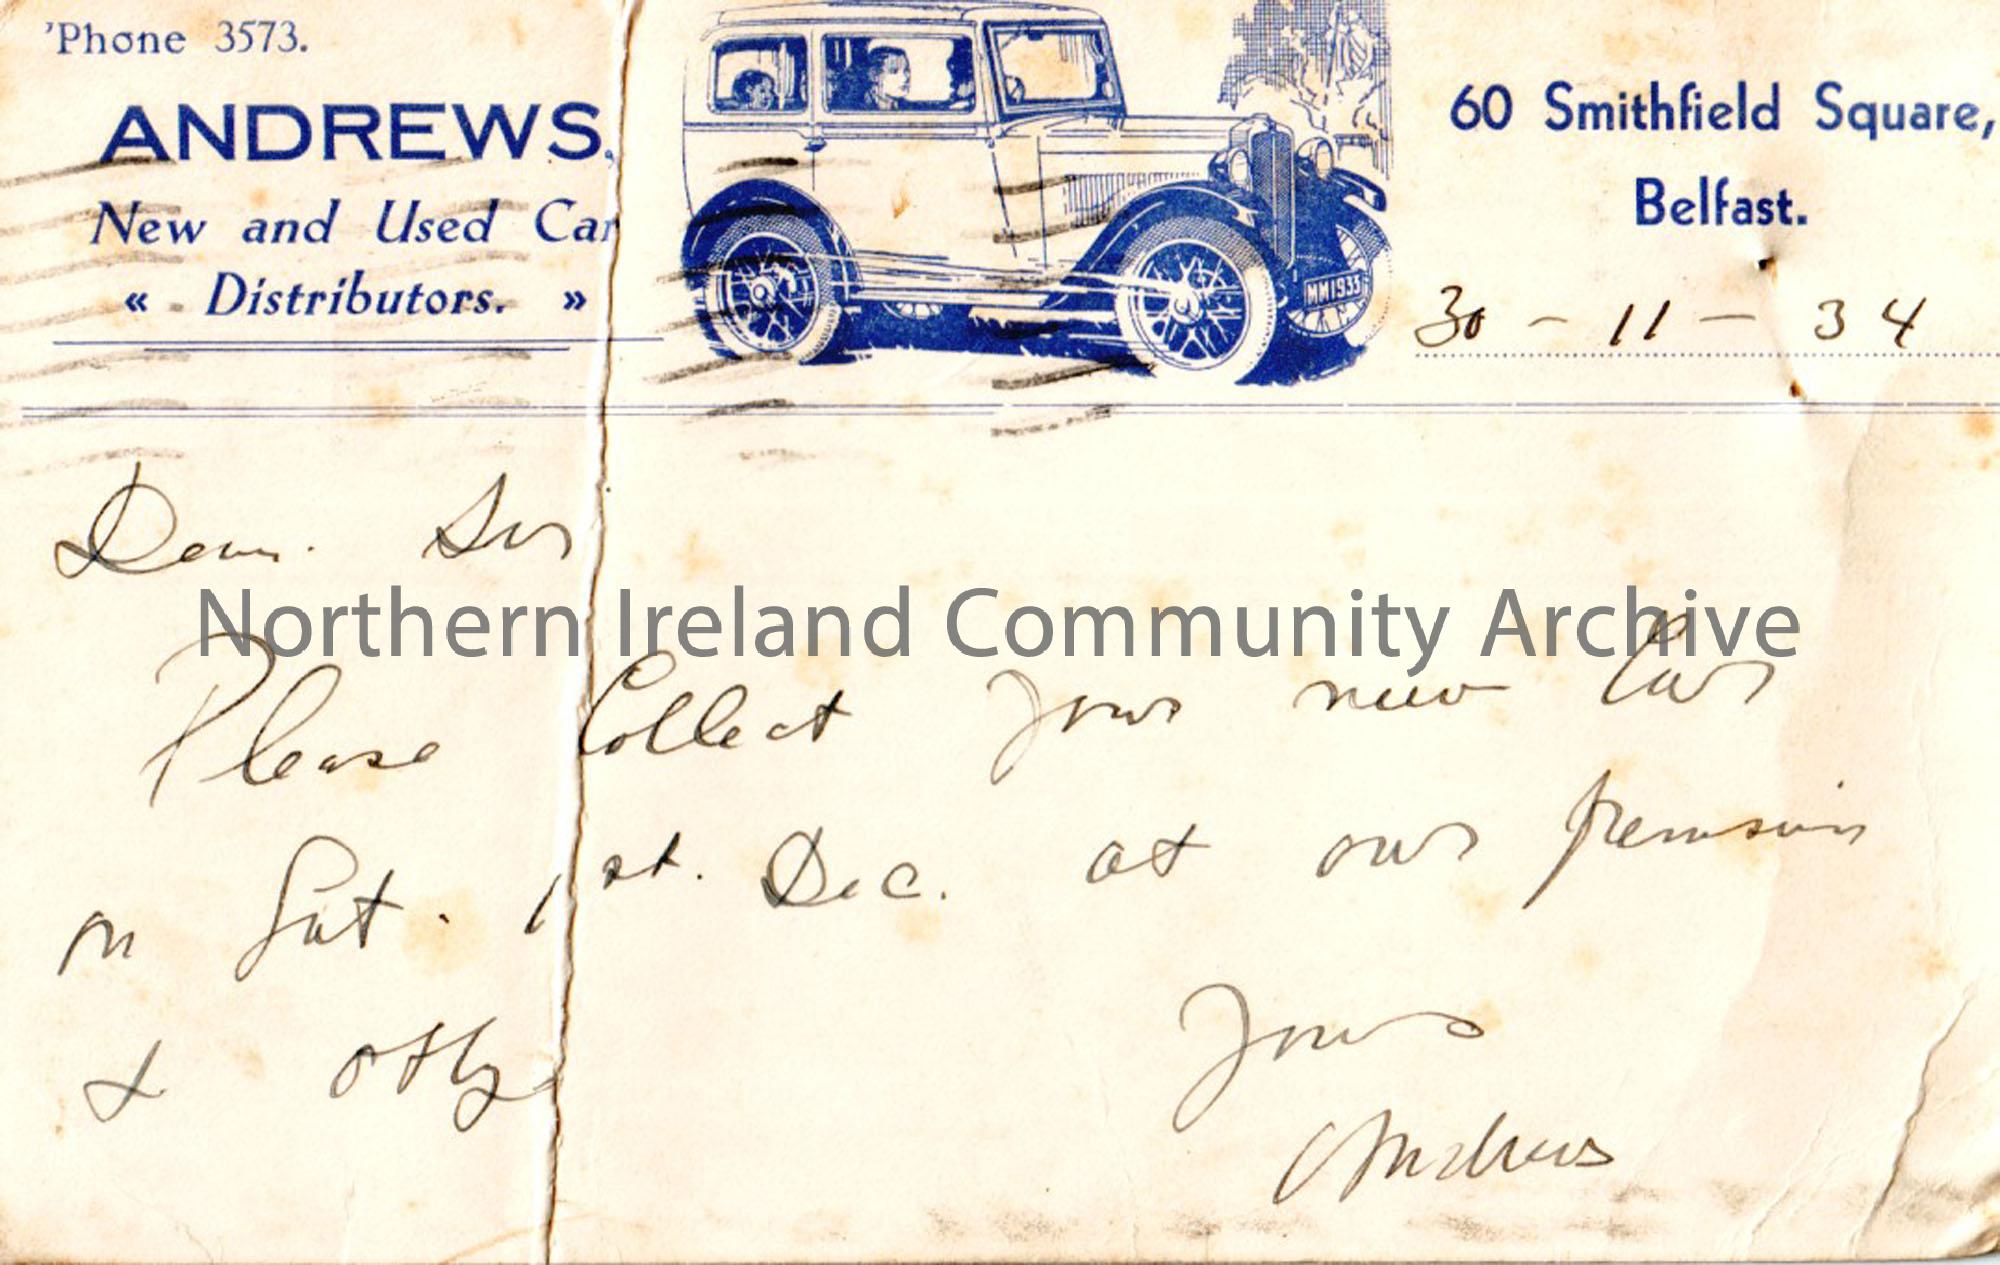 'Phone 3573.
ANDREWS,
New and Used Car
« Distributors. »
MM1933
60 Smithfield Square,
Belfast.
30 - 11 - 34
Dear Sir
Please Collect your new Car
on Sat. 1st. Dec. at our premises
& oblg
Yours
Andrews
Northern Ireland Community Archive